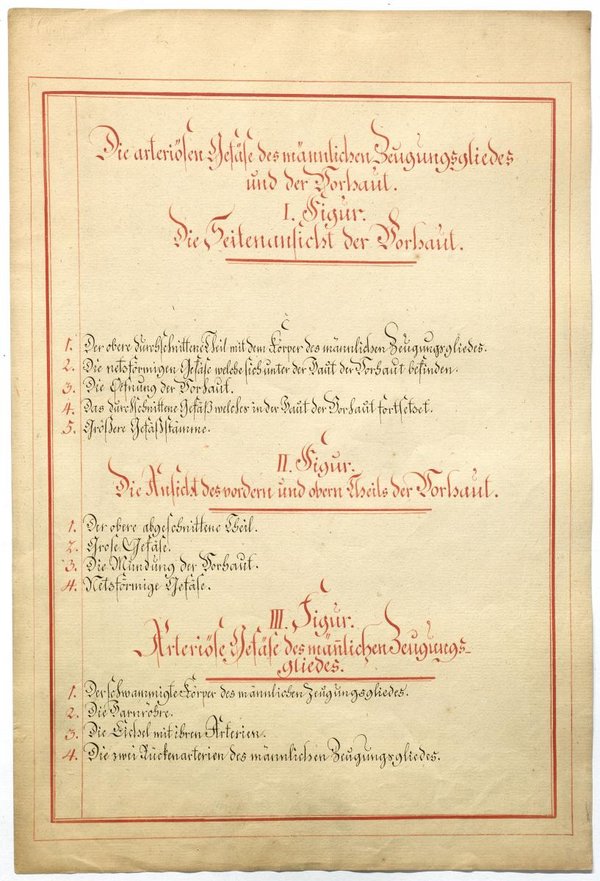 Die arteriösen Gefäße des männlichen Zeugungsgliedes
und der Vorhaut.
I. Figur.
Die Seitenansicht der Vorhaut.
1. Der obere durchschnittene Theil mit dem Körper des männlichen Zeugungsgliedes.
2. Die netzförmigen Gefäße welche sich unter der Haut der Vorhaut befinden.
3. Die Oefnung der Vorhaut.
4. Das durchschnittene Gefäß welches in der Haut der Vorhaut fortsetzet.
5. Größere Gefäßstämme.
II. Figur.
Die Ansicht des vordern und obern Theils der Vorhaut.
1. Der obere abgeschnittene Theil.
2. Grose Gefäße.
3. Die Mündung der Vorhaut.
4. Netzförmige Gefäße.
III. Figur.
Arteriöse Gefäße des mäñlichen Zeugungs-
gliedes.
1. Der schwammigte Körper des männlichen Zeugungsgliedes.
2. Die Harnröhre.
3. Die Eichel mit ihren Arterien.
4. Die zwei Rückenarterien des männlichen Zeugungsgliedes.